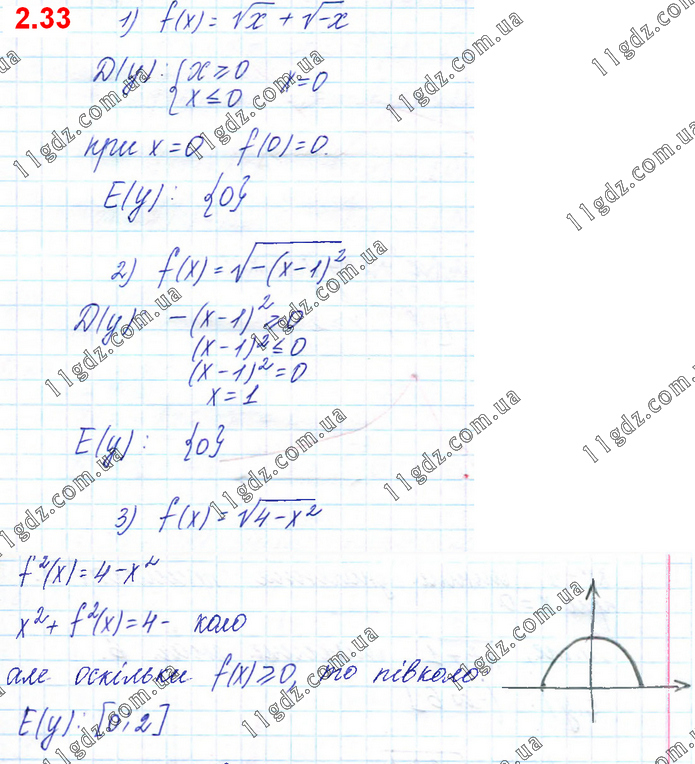 2.33
1) f(x) = √x + √-x
D(y): { x ⩾ 0
x ≤ 0 x = 0
при x = 0 f(0) = 0.
E(y): {0}
2) f(x) = √-(x-1)²
D(y) -(x-1)² ⩾ 0
(x-1)² ≤ 0
(x-1)² = 0
x = 1
E(y): {0}
3) f(x) = √4-x²
f²(x) = 4-x²
x² + f²(x) = 4 - коло
але оскільки f(x) ⩾ 0, то півколо
E(y): [0; 2]
11gdz.com.ua